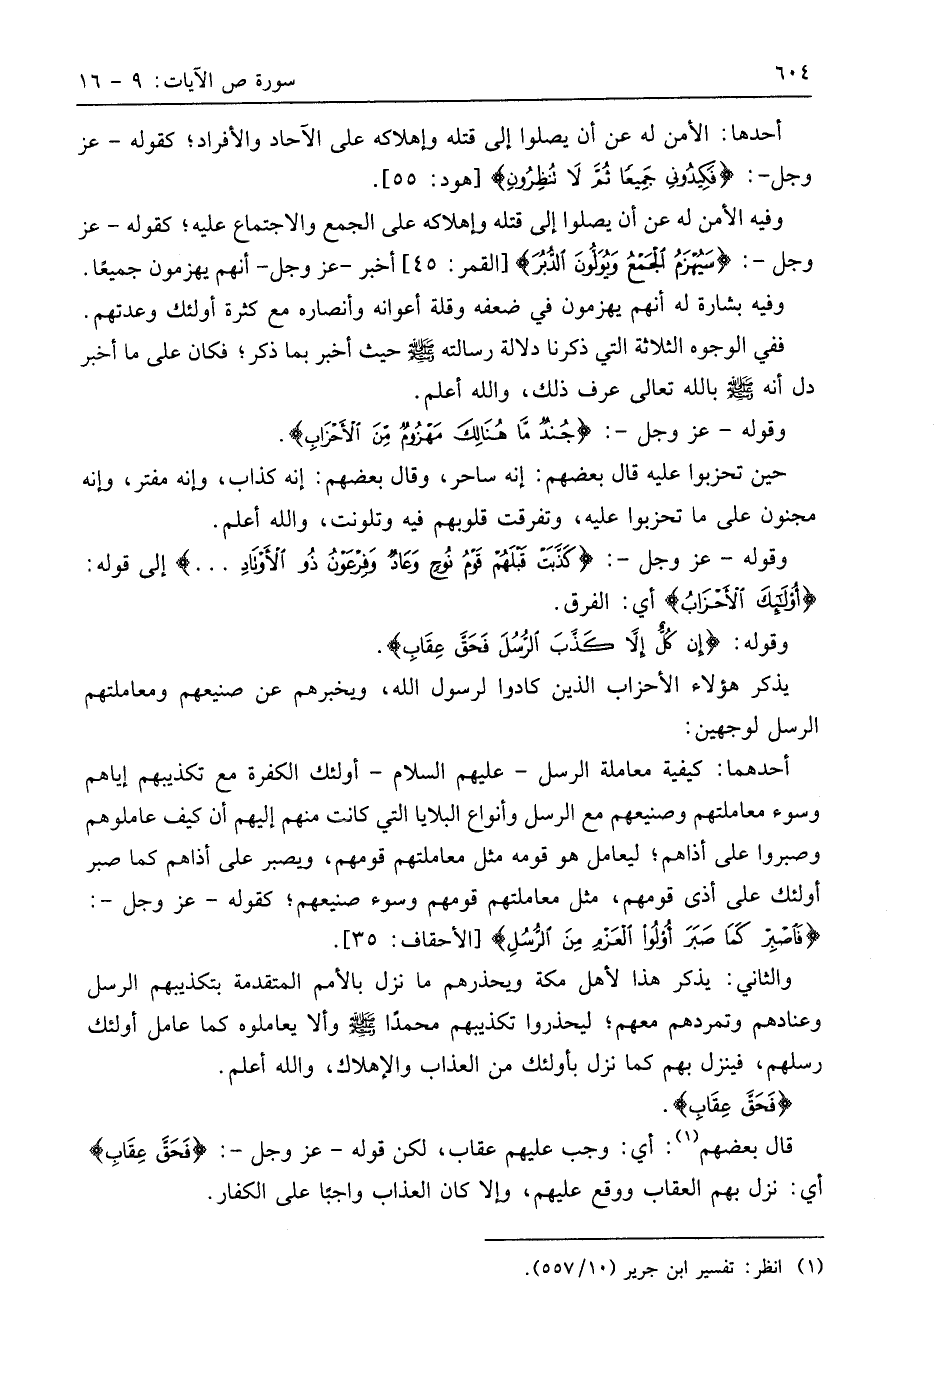 ٦٠٤
سورة ص الآيات: ٩ - ١٦
أحدها: الأمن له عن أن يصلوا إلى قتله وإهلاكه على الآحاد والأفراد؛ كقوله - عز
وجل-: ﴿فَكِيدُونِي جَمِيعًا ثُمَّ لَا تُنظِرُونِ﴾ [هود: ٥٥].
وفيه الأمن له عن أن يصلوا إلى قتله وإهلاكه على الجمع والاجتماع عليه؛ كقوله - عز
وجل -: ﴿سَيُهْزَمُ ٱلْجَمْعُ وَيُوَلُّونَ ٱلدُّبُرَ﴾ [القمر: ٤٥] أخبر -عز وجل- أنهم يهزمون جميعًا.
وفيه بشارة له أنهم يهزمون في ضعفه وقلة أعوانه وأنصاره مع كثرة أولئك وعدتهم.
ففي الوجوه الثلاثة التي ذكرنا دلالة رسالته ﷺ حيث أخبر بما ذكر؛ فكان على ما أخبر
دل أنه ﷺ بالله تعالى عرف ذلك، والله أعلم.
وقوله - عز وجل -: ﴿جُندٌ مَّا هُنَالِكَ مَهْزُومٌ مِّنَ ٱلْأَحْزَابِ﴾.
حين تحزبوا عليه قال بعضهم: إنه ساحر، وقال بعضهم: إنه كذاب، وإنه مفتر، وإنه
مجنون على ما تحزبوا عليه، وتفرقت قلوبهم فيه وتلونت، والله أعلم.
وقوله - عز وجل -: ﴿كَذَّبَتْ قَبْلَهُمْ قَوْمُ نُوحٍ وَعَادٌ وَفِرْعَوْنُ ذُو ٱلْأَوْتَادِ ...﴾ إلى قوله:
﴿أُوْلَٰٓئِكَ ٱلْأَحْزَابُ﴾ أي: الفرق.
وقوله: ﴿إِن كُلٌّ إِلَّا كَذَّبَ ٱلرُّسُلَ فَحَقَّ عِقَابِ﴾.
يذكر هؤلاء الأحزاب الذين كادوا لرسول الله، ويخبرهم عن صنيعهم ومعاملتهم
الرسل لوجهين:
أحدهما: كيفية معاملة الرسل - عليهم السلام - أولئك الكفرة مع تكذيبهم إياهم
وسوء معاملتهم وصنيعهم مع الرسل وأنواع البلايا التي كانت منهم إليهم أن كيف عاملوهم
وصبروا على أذاهم؛ ليعامل هو قومه مثل معاملتهم قومهم، ويصبر على أذاهم كما صبر
أولئك على أذى قومهم، مثل معاملتهم قومهم وسوء صنيعهم؛ كقوله - عز وجل -:
﴿فَٱصْبِرْ كَمَا صَبَرَ أُوْلُواْ ٱلْعَزْمِ مِنَ ٱلرُّسُلِ﴾ [الأحقاف: ٣٥].
والثاني: يذكر هذا لأهل مكة ويحذرهم ما نزل بالأمم المتقدمة بتكذيبهم الرسل
وعنادهم وتمردهم معهم؛ ليحذروا تكذيبهم محمدًا ﷺ وألا يعاملوه كما عامل أولئك
رسلهم، فينزل بهم كما نزل بأولئك من العذاب والإهلاك، والله أعلم.
﴿فَحَقَّ عِقَابِ﴾.
قال بعضهم(١): أي: وجب عليهم عقاب، لكن قوله - عز وجل -: ﴿فَحَقَّ عِقَابِ﴾
أي: نزل بهم العقاب ووقع عليهم، وإلا كان العذاب واجبًا على الكفار.
(١) انظر: تفسير ابن جرير (٥٥٧/١٠).